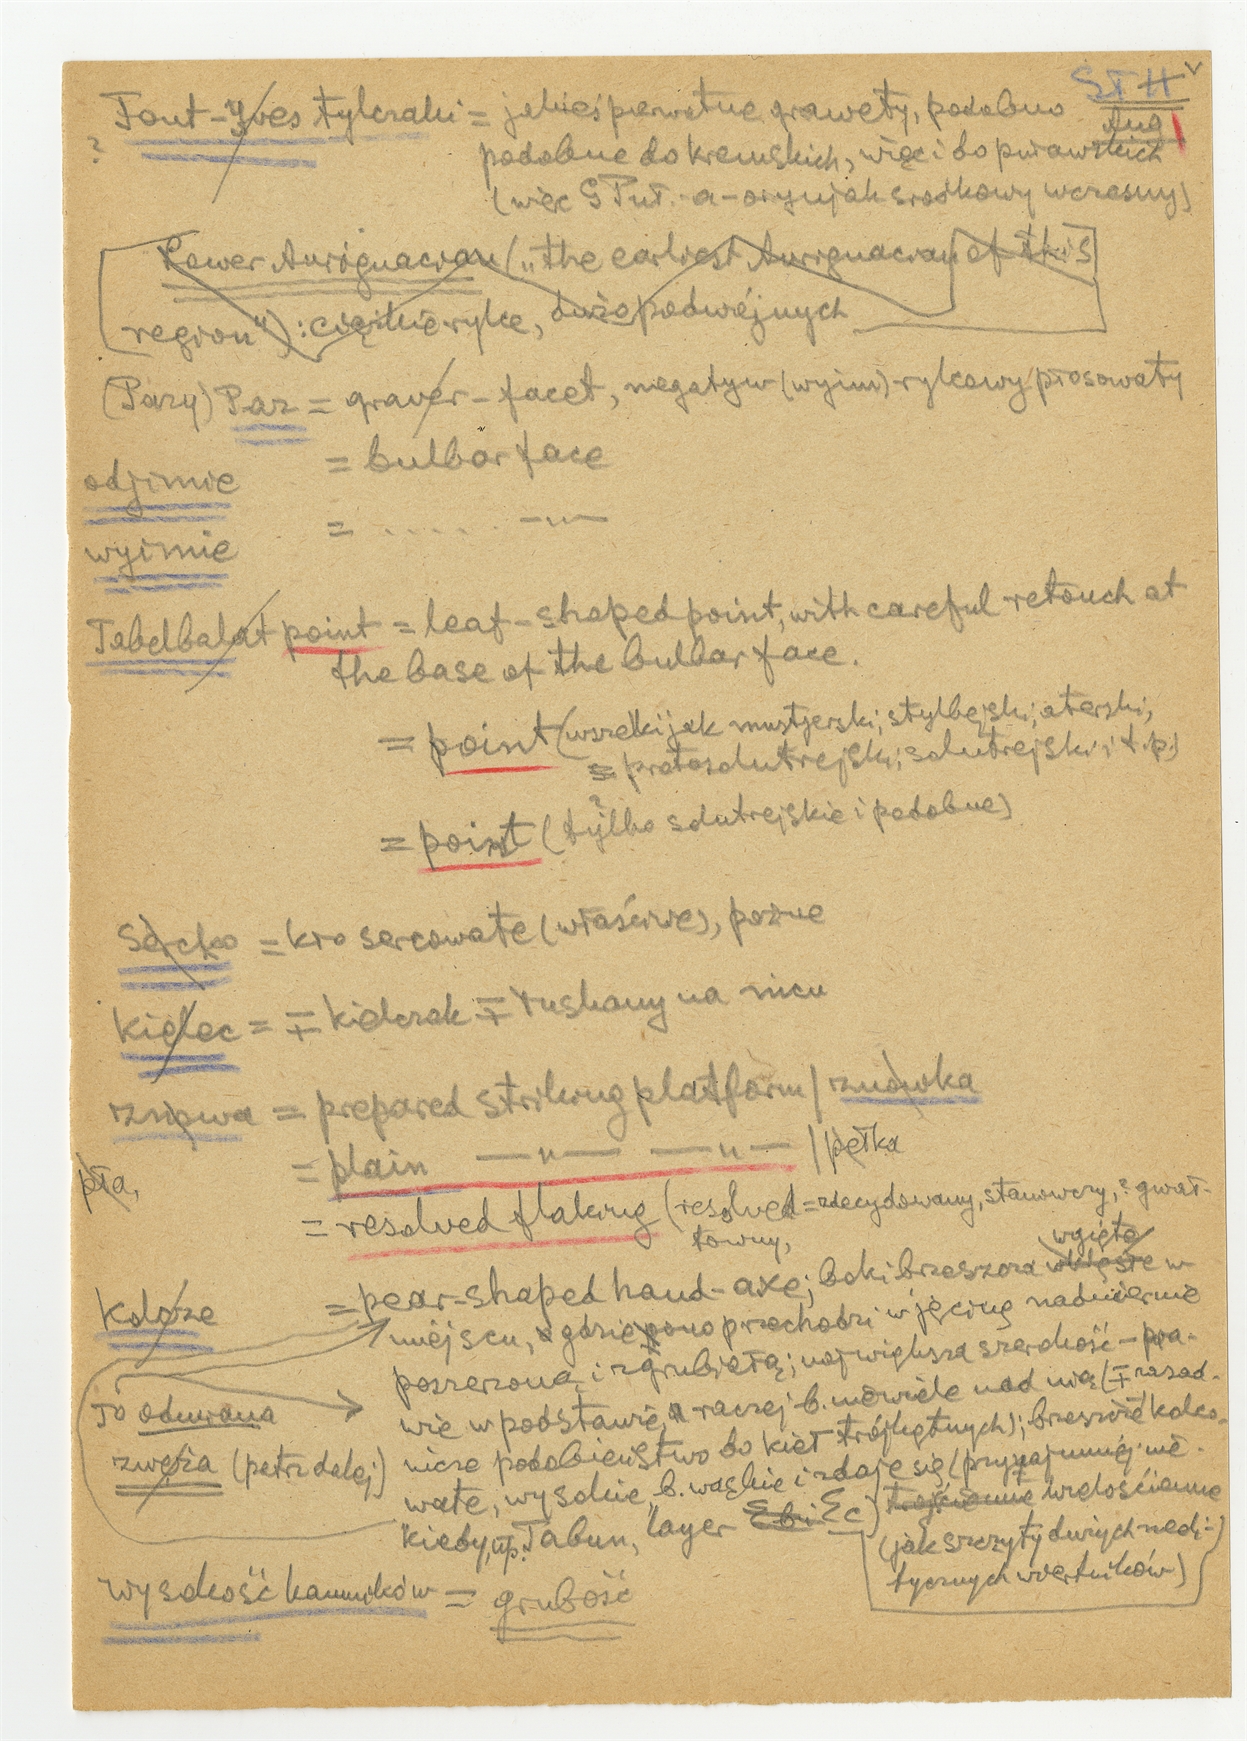 STH
Ang
Font-Yves tylczaki = jakieś pierwotne grawety, podobno
?
podobne do kremskich, więc i do puławskich
(więc G Puł. - a - orynjak środkowy wczesny)
Lower Aurignacian („the earliest Aurignacian of this
region”): ciężkie rylce, dużo podwójnych
(Pazy) Paz = graver-facet, negatyw (wyim) rylcowy płosowaty
odjimie = bulbar face
wyimie = ..... —"—
Tabelbalat point = leaf-shaped point, with careful retouch at
the base of the bulbar face.
= point (wszelki jak mustjerski; stylbejski; aterski;
= protosolutrejski; solutrejski i t.p.)
?
= point (tylko solutrejskie i podobne)
Sercko = kro sercowate (właściwe), późne
Kielec = ∓ kielczak ∓ łuskany na nicu
= prepared striking platform / znówka
= plain —"— —"— / pętka
pła,
= resolved flaking (resolved = zdecydowany, stanowczy, ? gwał-
towny,
wgięte
= pear-shaped hand-axe; boki brzeszcza wklęsłe w
miejscu, gdzie ono przechodzi w jęcinę nadmiernie
poszerzoną i zgrubiałą; największa szerokość – pra-
wie w podstawie, raczej b. niewiele nad nią (∓ zasad-
nicze podobieństwo do kieł trójkątnych); brzeszcze kolco-
wate, wysokie, b. wąskie i zdaje się (przynajmniej nie-
kiedy, np. Tabun, layer Ebi Ec) trójścienne wielościenne
(jak szczyty dużych
tycznych wiertników)
To odmiana
zwęża (patrz dalej)
wysokość kamyków = grubość